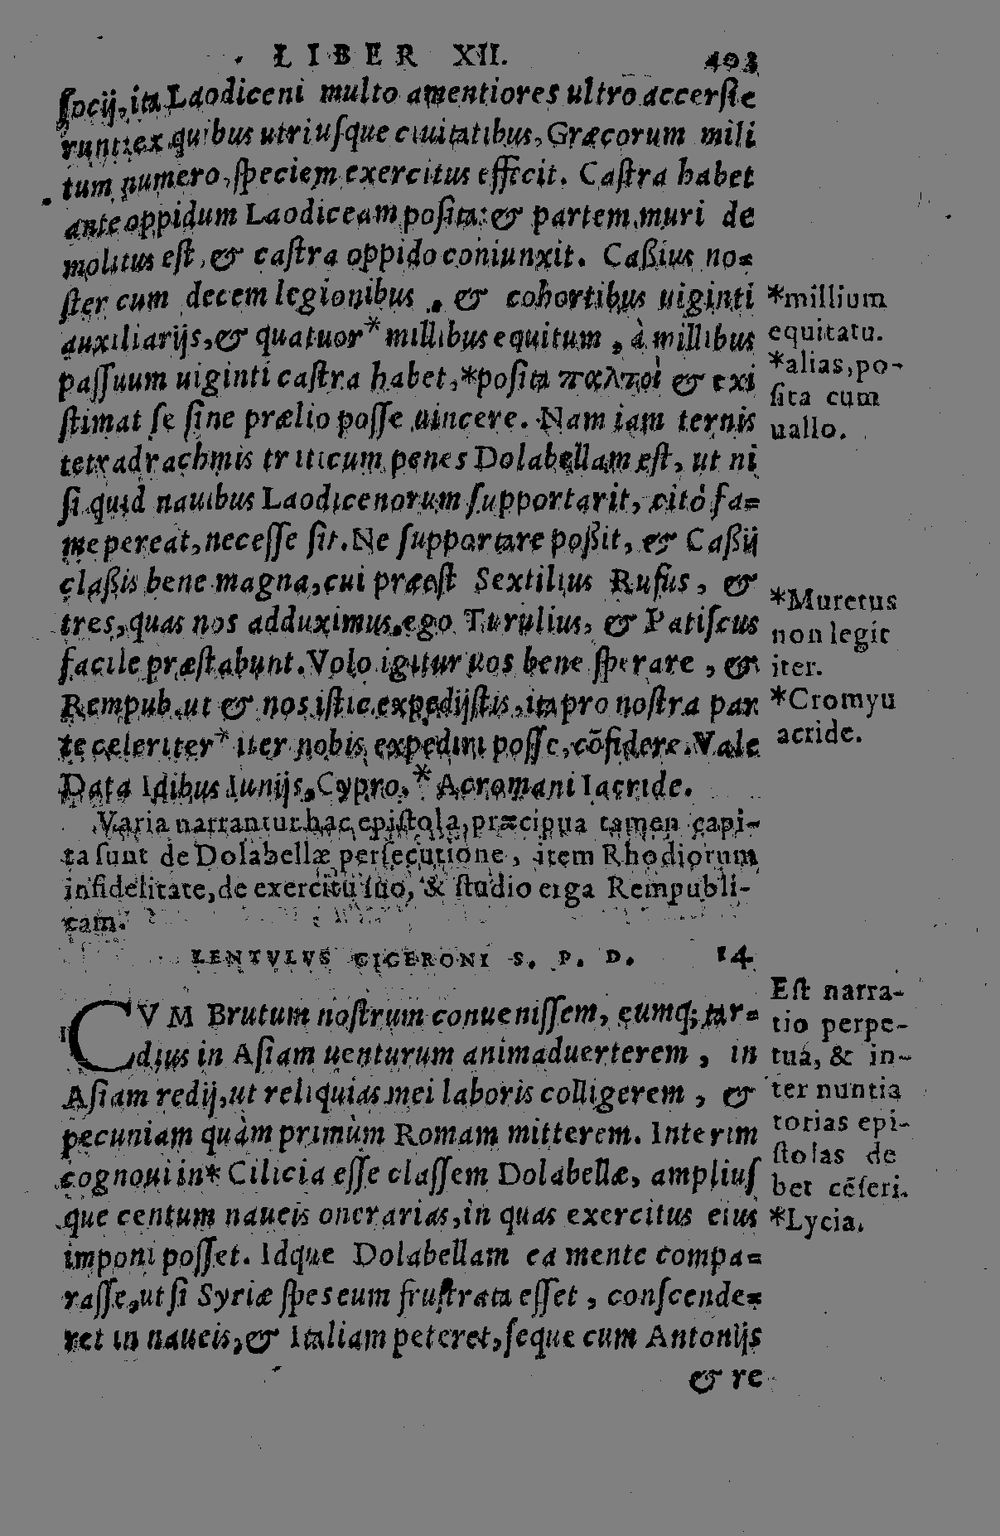 LIBER XII. 403
ſocij, ita Laodiceni multo amentiores ultrò accerſie
runt: ex quibus utriuſque ciuitatibus, Græcorum mili
tum numero, ſpeciem exercitus effecit. Caſtra habet
ante oppidum Laodiceam poſita: & partem muri de
molitus eſt, & caſtra oppido coniunxit. Caßius no=
ſter cum decem legionibus, & cohortibus uiginti
auxiliarijs, & quatuor* millibus equitum, à millibus
paſſuum uiginti caſtra habet, *poſita παλτοὶ & exi
ſtimat ſe ſine prælio poſſe uincere. Nam iam ternis
tetradrachmis triticum penes Dolabellam eſt, ut ni
ſi quid nauibus Laodicenorum ſupportarit, citò fa=
me pereat, neceſſe ſit. Ne ſupportare poßit, & Caßij
claßis bene magna, cui præeſt Sextilius Rufus, &
tres, quas nos adduximus, ego Turulius, & Patiſcus
facile præſtabunt. Volo igitur uos bene ſperare, &
Rempub. ut & nos iſtic expedijſtis, ita pro noſtra par
te celeriter* iter nobis expediri poſſe, cõfidere. Vale
Data Idibus Iunijs, Cypro, * Acromani Iacride.
*millium
equitatu.
*alias, po-
ſita cum
uallo.
*Muretus
non legit
iter.
*Cromyu
acride.
Varia narrantur hac epiſtola, præcipua tamen capi-
ta ſunt de Dolabellæ perſecutione, item Rhodiorum
infidelitate, de exercitu ſuo, & ſtudio erga Rempubli-
cam.
LENTVLVS CICERONI S. P. D. 14
CVM Brutum noſtrum conueniſſem, eumq; tar=
dius in Aſiam uenturum animaduerterem, in
Aſiam redij, ut reliquias mei laboris colligerem, &
pecuniam quàm primùm Romam mitterem. Interim
cognoui in* Cilicia eſſe claſſem Dolabellæ, ampliuſ
que centum naueis onerarias, in quas exercitus eius
imponi poſſet. Idque Dolabellam ea mente compa=
raſſe, ut ſi Syriæ ſpes eum fruſtrata eſſet, conſcende=
ret in naueis, & Italiam peteret, ſeque cum Antonijs
& re
Eſt narra-
tio perpe-
tua, & in-
ter nuntia
torias epi-
ſtolas de
bet cẽſeri.
*Lycia.